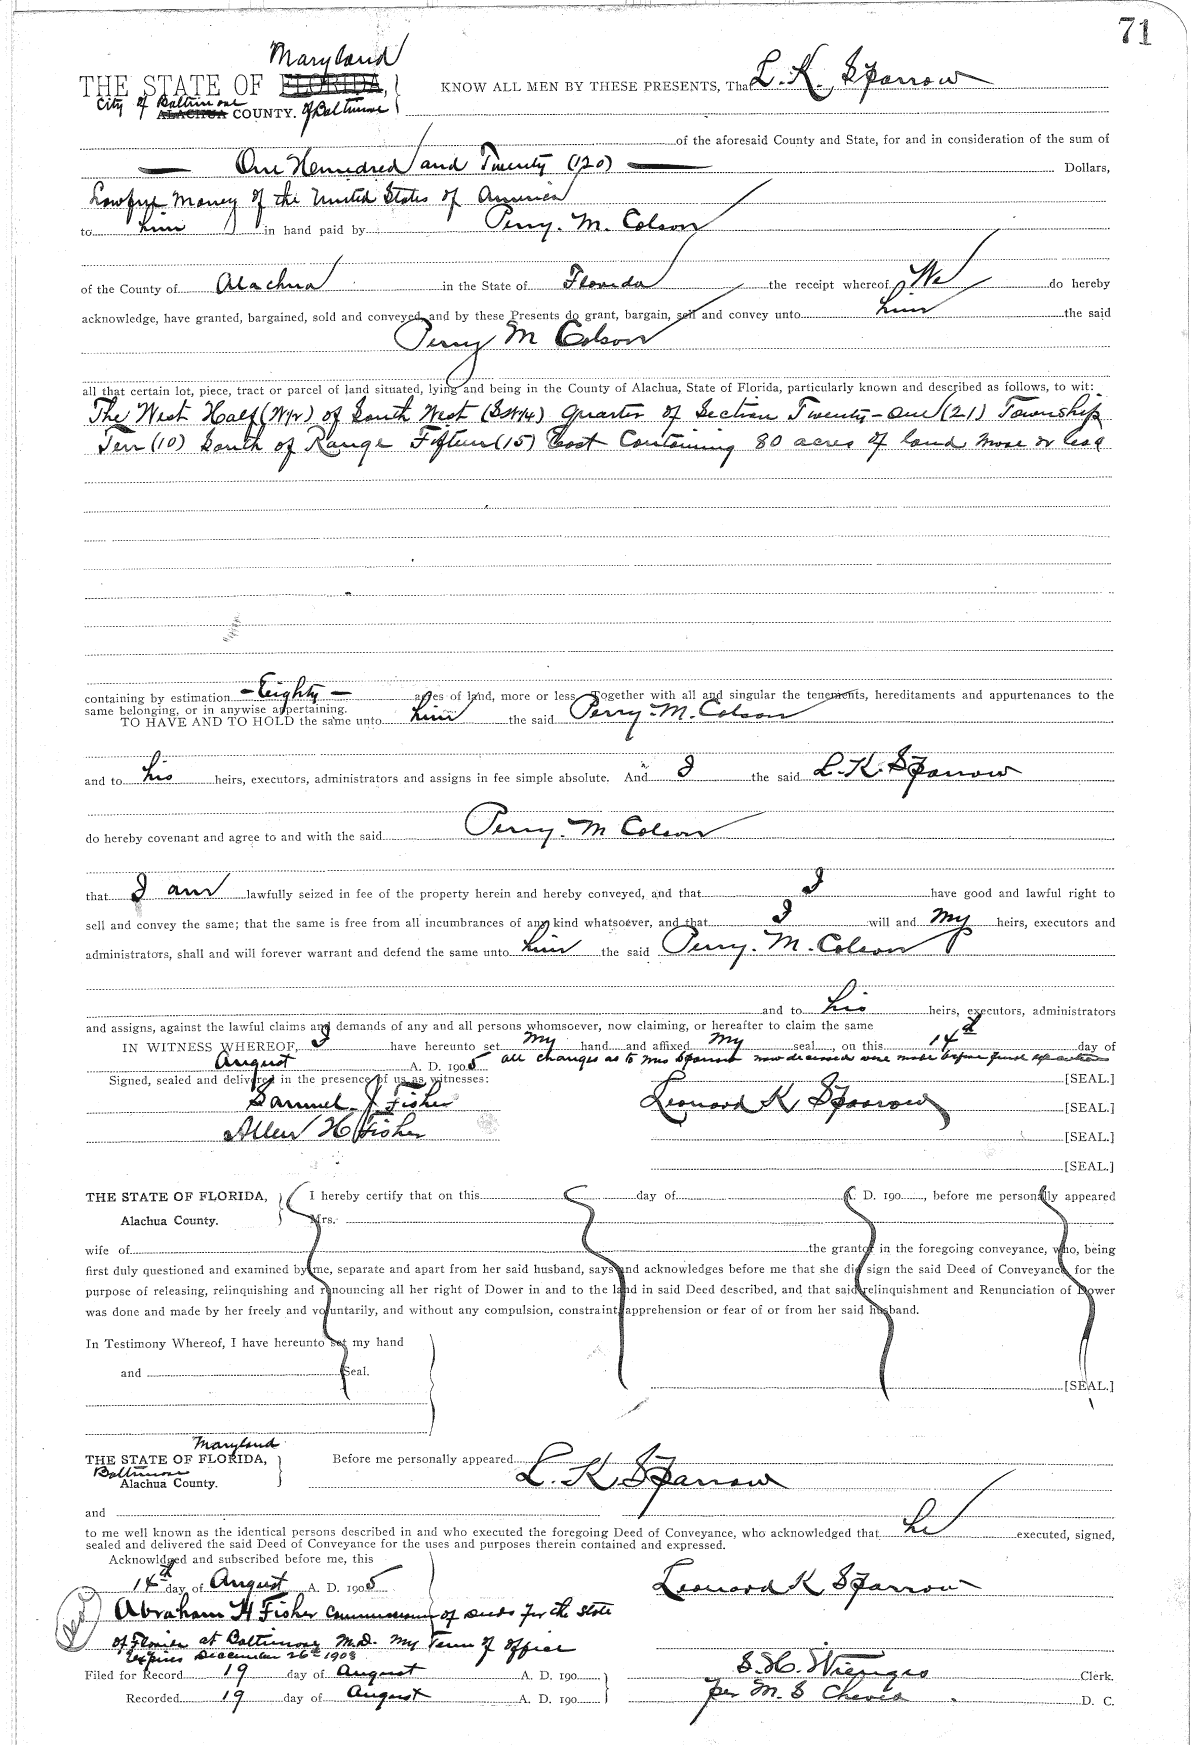 71
Maryland
THE STATE OF FLORIDA, KNOW ALL MEN BY THESE PRESENTS, That L. K. Sparrow
City of Baltimore
ALACHUA COUNTY. of Baltimore
of the aforesaid County and State, for and in consideration of the sum of
One Hundred and Twenty (120) Dollars,
Lawful Money of the United States of America
to him in hand paid by Perry. M. Colson
of the County of Alachua in the State of Florida the receipt whereof We do hereby
acknowledge, have granted, bargained, sold and conveyed and by these Presents do grant, bargain, sell and convey unto him the said
Perry M Colson
all that certain lot, piece, tract or parcel of land situated, lying and being in the County of Alachua, State of Florida, particularly known and described as follows, to wit:
The West Half (W1/2) of South West (SW1/4) Quarter of Section Twenty-One (21) Township
Ten (10) South of Range Fifteen (15) East Containing 80 acres of land more or less
containing by estimation - Eighty - acres of land, more or less. Together with all and singular the tenements, hereditaments and appurtenances to the
same belonging, or in anywise appertaining.
TO HAVE AND TO HOLD the same unto him the said Perry. M. Colson
and to his heirs, executors, administrators and assigns in fee simple absolute. And I the said L. K. Sparrow
do hereby covenant and agree to and with the said Perry. M Colson
that I am lawfully seized in fee of the property herein and hereby conveyed, and that I have good and lawful right to
sell and convey the same; that the same is free from all incumbrances of any kind whatsoever, and that I will and my heirs, executors and
administrators, shall and will forever warrant and defend the same unto him the said Perry. M. Colson
and to his heirs, executors, administrators
and assigns, against the lawful claims and demands of any and all persons whomsoever, now claiming, or hereafter to claim the same
IN WITNESS WHEREOF, I have hereunto set my hand and affixed my seal, on this 14th day of
August A. D. 1905 all changes as to Mrs Sparrow now deceased were made before final execution
Signed, sealed and delivered in the presence of us as witnesses: [SEAL.]
Samuel J Fisher Leonard K Sparrow [SEAL.]
Allen H Fisher [SEAL.]
[SEAL.]
THE STATE OF FLORIDA, I hereby certify that on this day of A. D. 190 , before me personally appeared
Alachua County. Mrs.
wife of the grantor in the foregoing conveyance, who, being
first duly questioned and examined by me, separate and apart from her said husband, says and acknowledges before me that she did sign the said Deed of Conveyance for the
purpose of releasing, relinquishing and renouncing all her right of Dower in and to the land in said Deed described, and that said relinquishment and Renunciation of Dower
was done and made by her freely and voluntarily, and without any compulsion, constraint, apprehension or fear of or from her said husband.
In Testimony Whereof, I have hereunto set my hand
and Seal.
[SEAL.]
Maryland
THE STATE OF FLORIDA, Before me personally appeared L. K Sparrow
Baltimore
Alachua County.
and
to me well known as the identical persons described in and who executed the foregoing Deed of Conveyance, who acknowledged that he executed, signed,
sealed and delivered the said Deed of Conveyance for the uses and purposes therein contained and expressed.
Acknowldged and subscribed before me, this
14th day of August A. D. 1905 Leonard K Sparrow
Seal Abraham H Fisher Commissioner of Deeds for the State
of Florida at Baltimore M.D. My Term of office
Expires December 26th 1908
Filed for Record 19 day of August A. D. 190 S. H. Wienges Clerk.
Recorded 19 day of August A. D. 190 per M. S Cheves D. C.